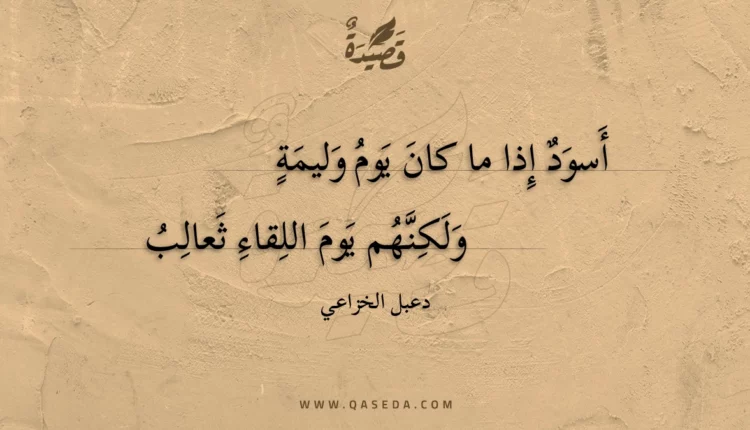 قَصِيدَةٌ
أَسوَدٌ إِذا ما كانَ يَومُ وَليمَةٍ
وَلَكِنَّهُم يَومَ اللِقاءِ ثَعالِبُ
دعبل الخزاعي
WWW.QASEDA.COM